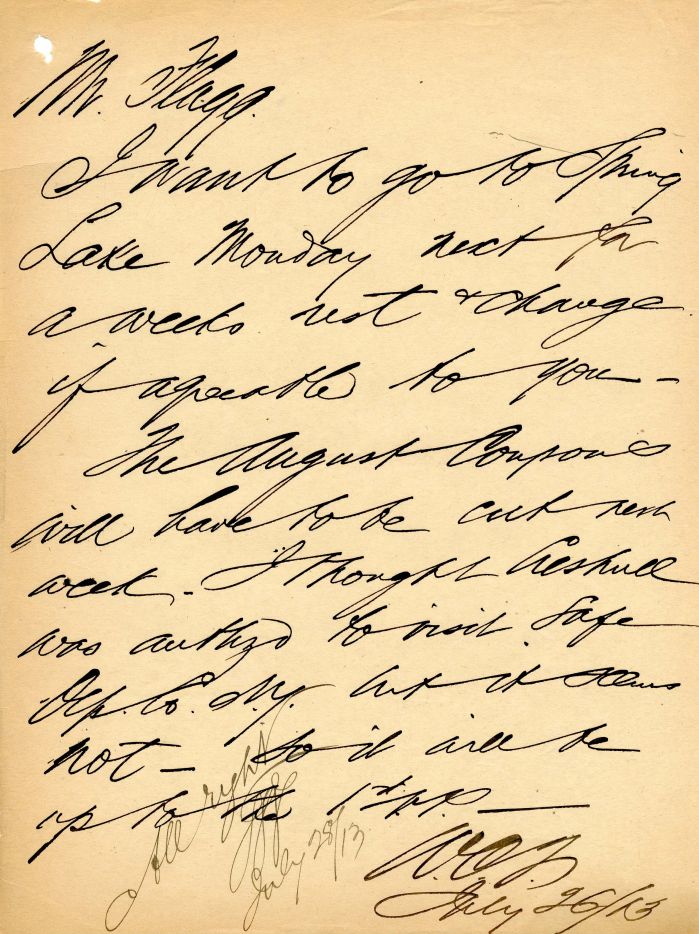 Mr. Flagg.
I want to go to Spring
Lake Monday next for
a weeks rest & change
if agreeable to you —
The August Coupons
will have to be cut next
week. I thought
was authzd to visit Safe
Dep. Co. N.Y. but it seems
not — So it will be
up to the 1st V.P. —
July 26/13
All right
July 28/13